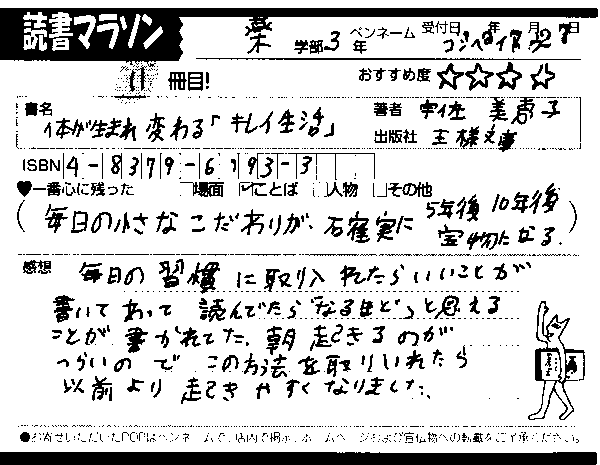 読書マラソン
薬 学部 3年 ペンネーム 受付日 年 月 日
11 冊目! おすすめ度 ☆☆☆☆
書名 体が生まれ変わる「キレイ生活」
著者 宇佐美恵子
出版社 王様文庫
ISBN 4-8379-6193-3
♥一番心に残った □場面 ☑ことば □人物 □その他
(毎日の小さなこだわりが、確実に5年後10年後宝物になる。)
感想 毎日の習慣に取り入れたらいいことが
書いてあって読んでたら"なるほど"っと思える
ことが書かれてた。朝起きるのが
つらいのでこの方法を取りいれたら
以前より起きやすくなりました。
●お寄せいただいたPOPはペンネームで、店内で掲示、ホームページおよび宣伝物への転載をご了承ください。